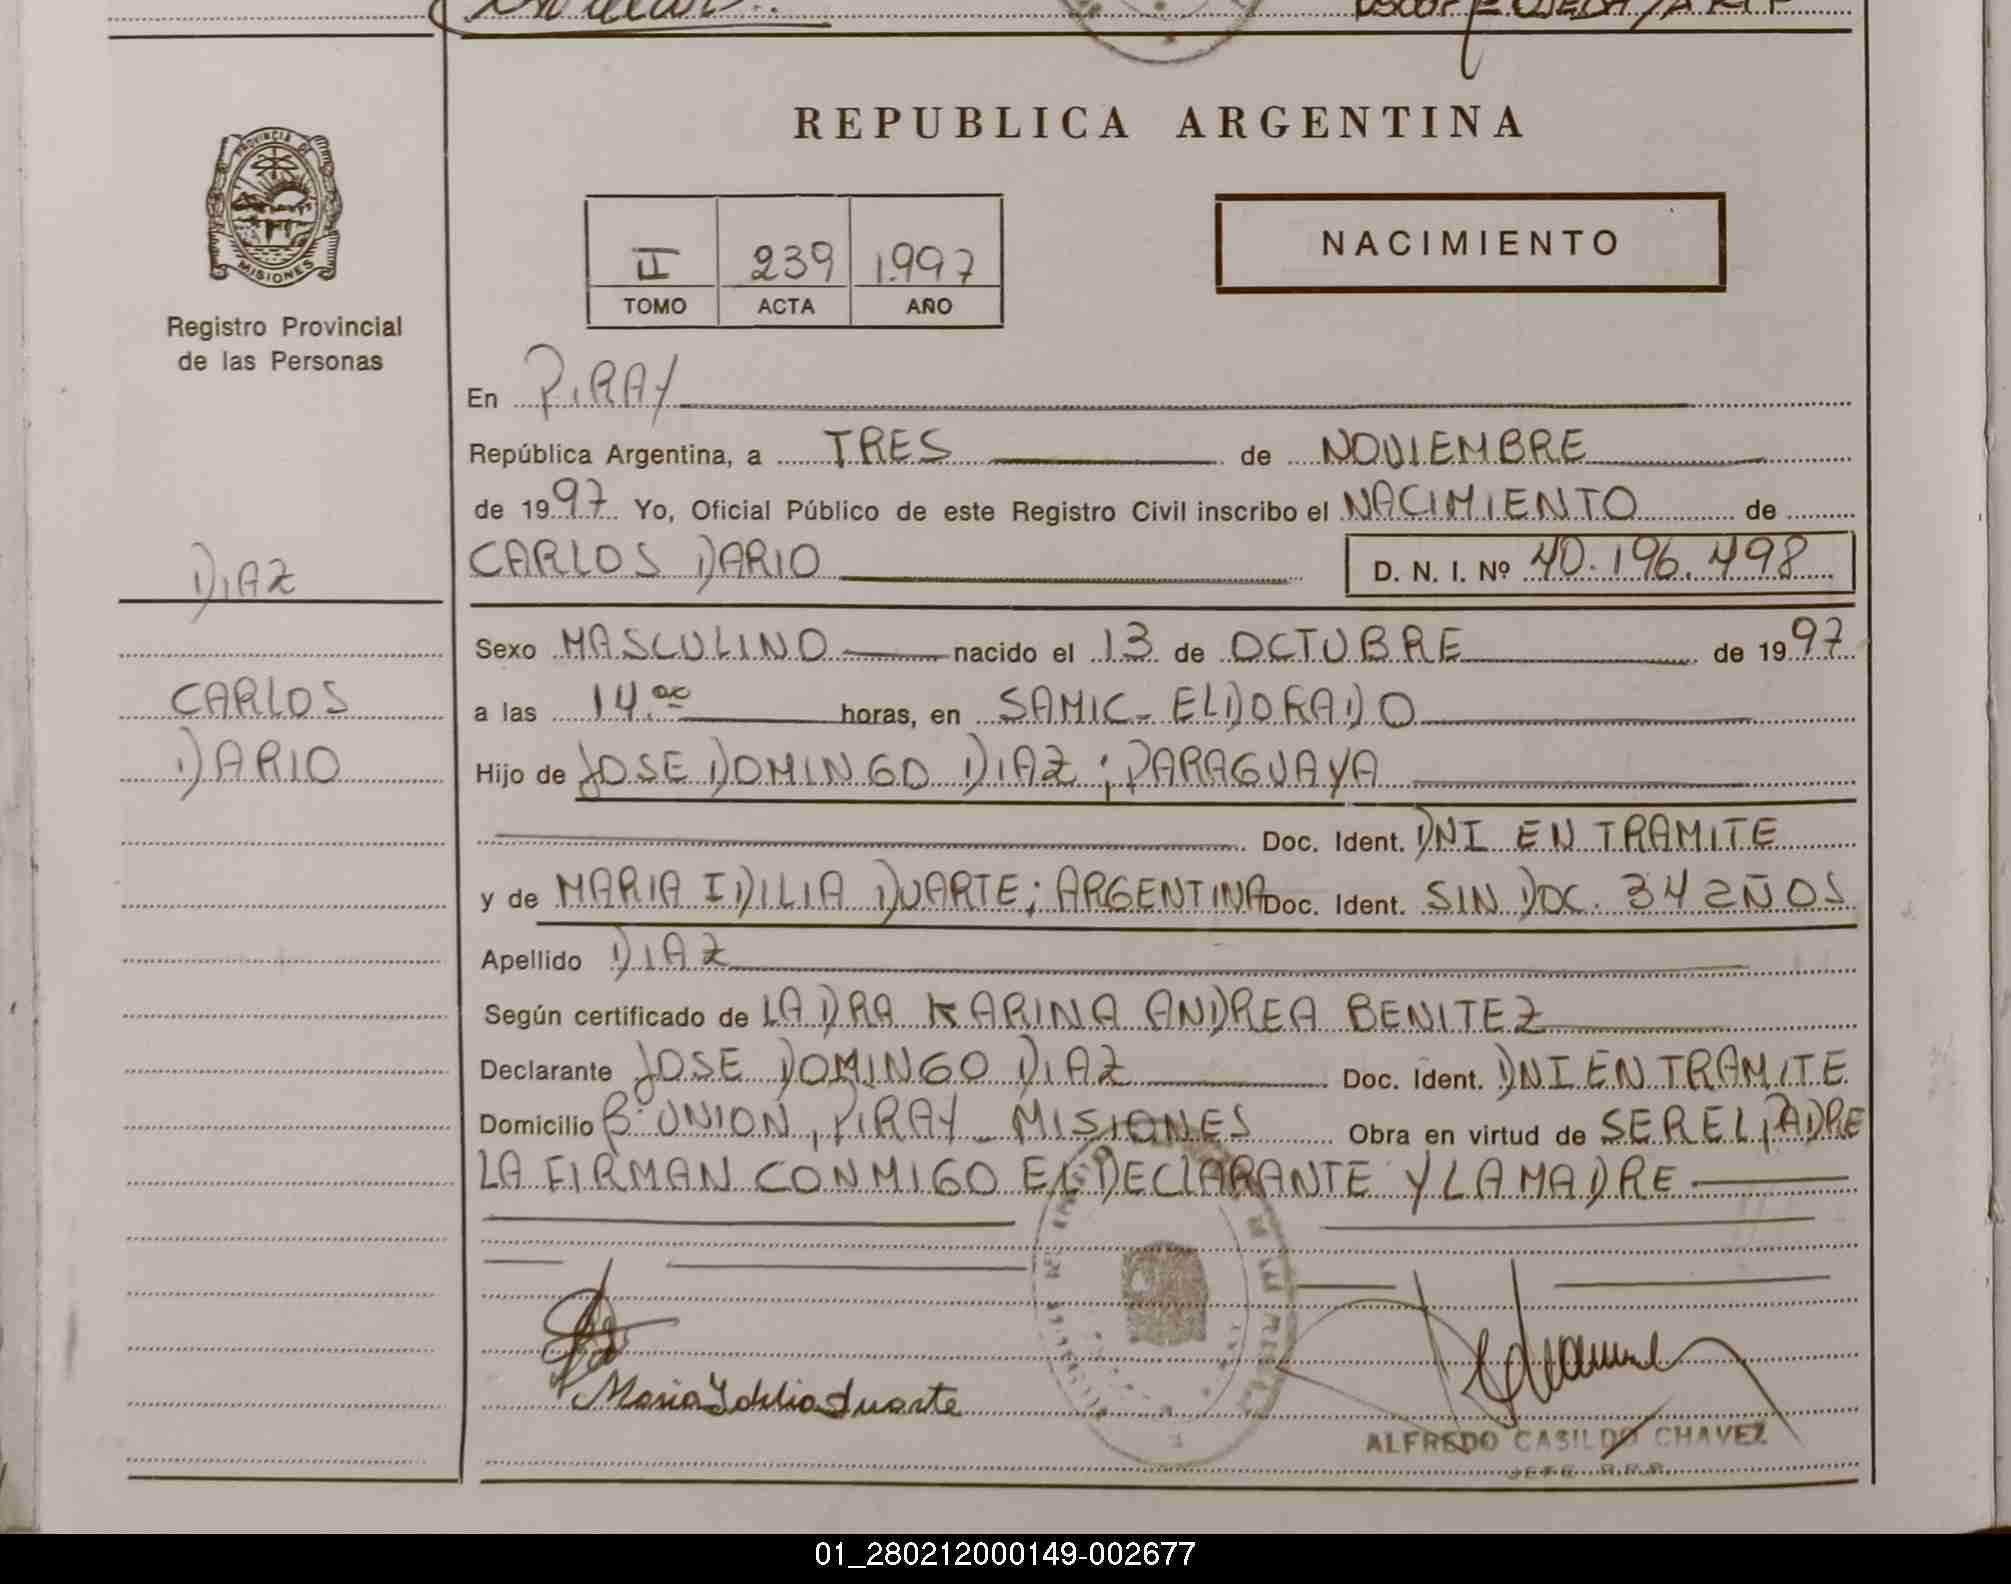 REPUBLICA ARGENTINA
PROVINCIA DE
MISIONES
Registro Provincial
de las Personas
II 239 1.997
TOMO ACTA AÑO
NACIMIENTO
En PIRAY
República Argentina, a TRES de NOVIEMBRE
de 1997 Yo, Oficial Público de este Registro Civil inscribo el NACIMIENTO de
CARLOS DARIO D. N. I. Nº 40.196.498
DIAZ
CARLOS
DARIO
Sexo MASCULINO nacido el 13 de OCTUBRE de 1997
a las 14.00 horas, en SAMIC - ELDORADO
Hijo de JOSE DOMINGO DIAZ; PARAGUAYA
Doc. Ident. DNI EN TRAMITE
y de MARIA IDILIA DUARTE; ARGENTINA Doc. Ident. SIN DOC. 34 AÑOS
Apellido DIAZ
Según certificado de LA DRA KARINA ANDREA BENITEZ
Declarante JOSE DOMINGO DIAZ Doc. Ident. DNI EN TRAMITE
Domicilio Bº UNION, PIRAY - MISIONES Obra en virtud de SER EL PADRE
LA FIRMAN CONMIGO EL DECLARANTE Y LA MADRE
Maria Idilia Duarte
ALFREDO CASILDO CHAVEZ
JEFE R.P.P.
01_280212000149-002677